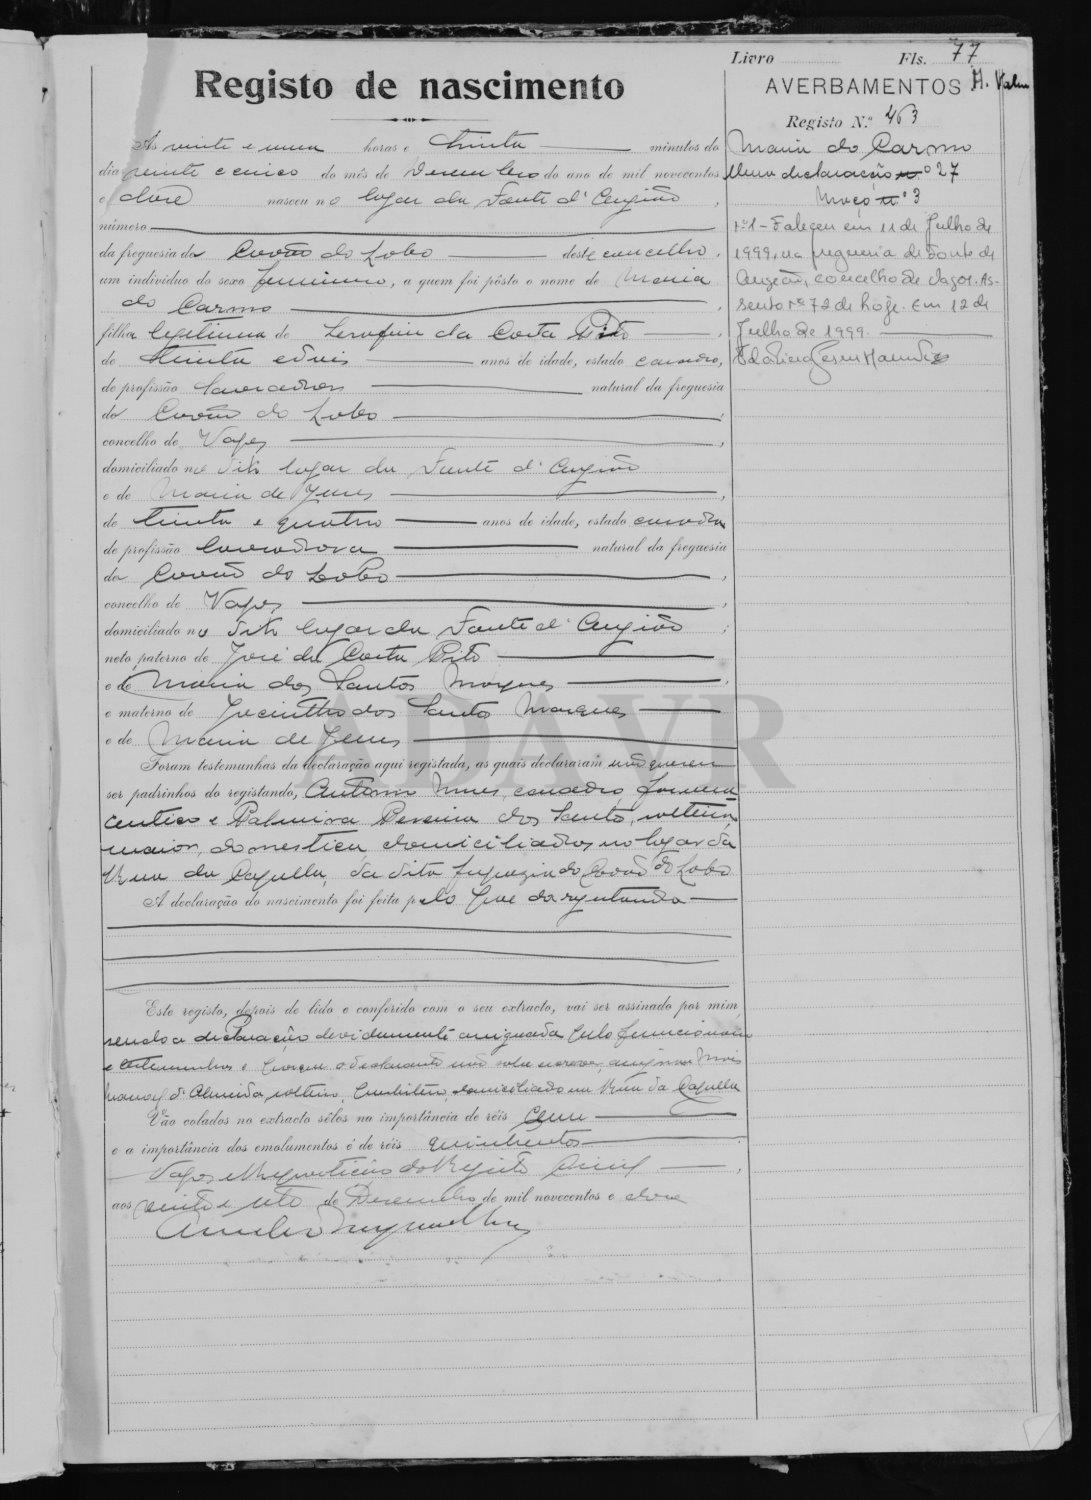 Livro Fls. 77
Registo de nascimento
AVERBAMENTOS
Registo N.º 463
Ás vinte e uma horas e trinta minutos do
dia vinte e cinco do mês de Dezembro do ano de mil novecentos
e doze nasceu no logar da Fonte d'Angião,
número
da freguesia de Covão do Lobo deste concelho,
um indivíduo do sexo feminino, a quem foi pôsto o nome de Maria
do Carmo,
filha legitima de Serafim da Costa Pito,
de trinta e dois anos de idade, estado casado,
de profissão lavrador natural da freguesia
do Covão do Lobo,
concelho de Vagos,
domiciliado no dito logar da Fonte d'Angião
e de Maria de Jesus,
de trinta e quatro anos de idade, estado casada
de profissão lavradora natural da freguesia
do Covão do Lobo,
concelho de Vagos,
domiciliado no dito logar da Fonte d'Angião;
neto paterno de José da Costa Pito
e de Maria dos Santos Marques,
e materno de Jacintho dos Santos Marques
e de Maria de Jesus
Foram testemunhas da declaração aqui registada, as quais declararam não querem
ser padrinhos do registando, Antonio Nunes, casado, farma
ceutico e Palmira Pereira dos Santos, solteira,
maior, domestica, domiciliados no logar da
da Capella, da dita freguezia do Covão do Lobo
A declaração do nascimento foi feita pelo pae da registanda
Este registo, depois de lido e conferido com o seu extracto, vai ser assinado por mim,
sendo a declaração devidamente assignada pelo funcionario
e testemunhas e porque o declarante não sabe escrever, assignou
Manoel d'Almeida, solteiro, domiciliado na da Capella
Vão colados no extracto sêlos na importância de réis cem
e a importância dos emolumentos é de réis quinhentos
Vagos e Repartição do Registo Civil,
aos vinte e sete de Dezembro de mil novecentos e doze
Maria do Carmo
declaração n.º 27
Maço n.º 3
N.º 1 - Faleceu em 11 de Julho de
1999, na freguesia de Fonte de
Angeão, concelho de Vagos. As-
sento n.º 72 de hoje. Em 12 de
Julho de 1999.
ADAVR